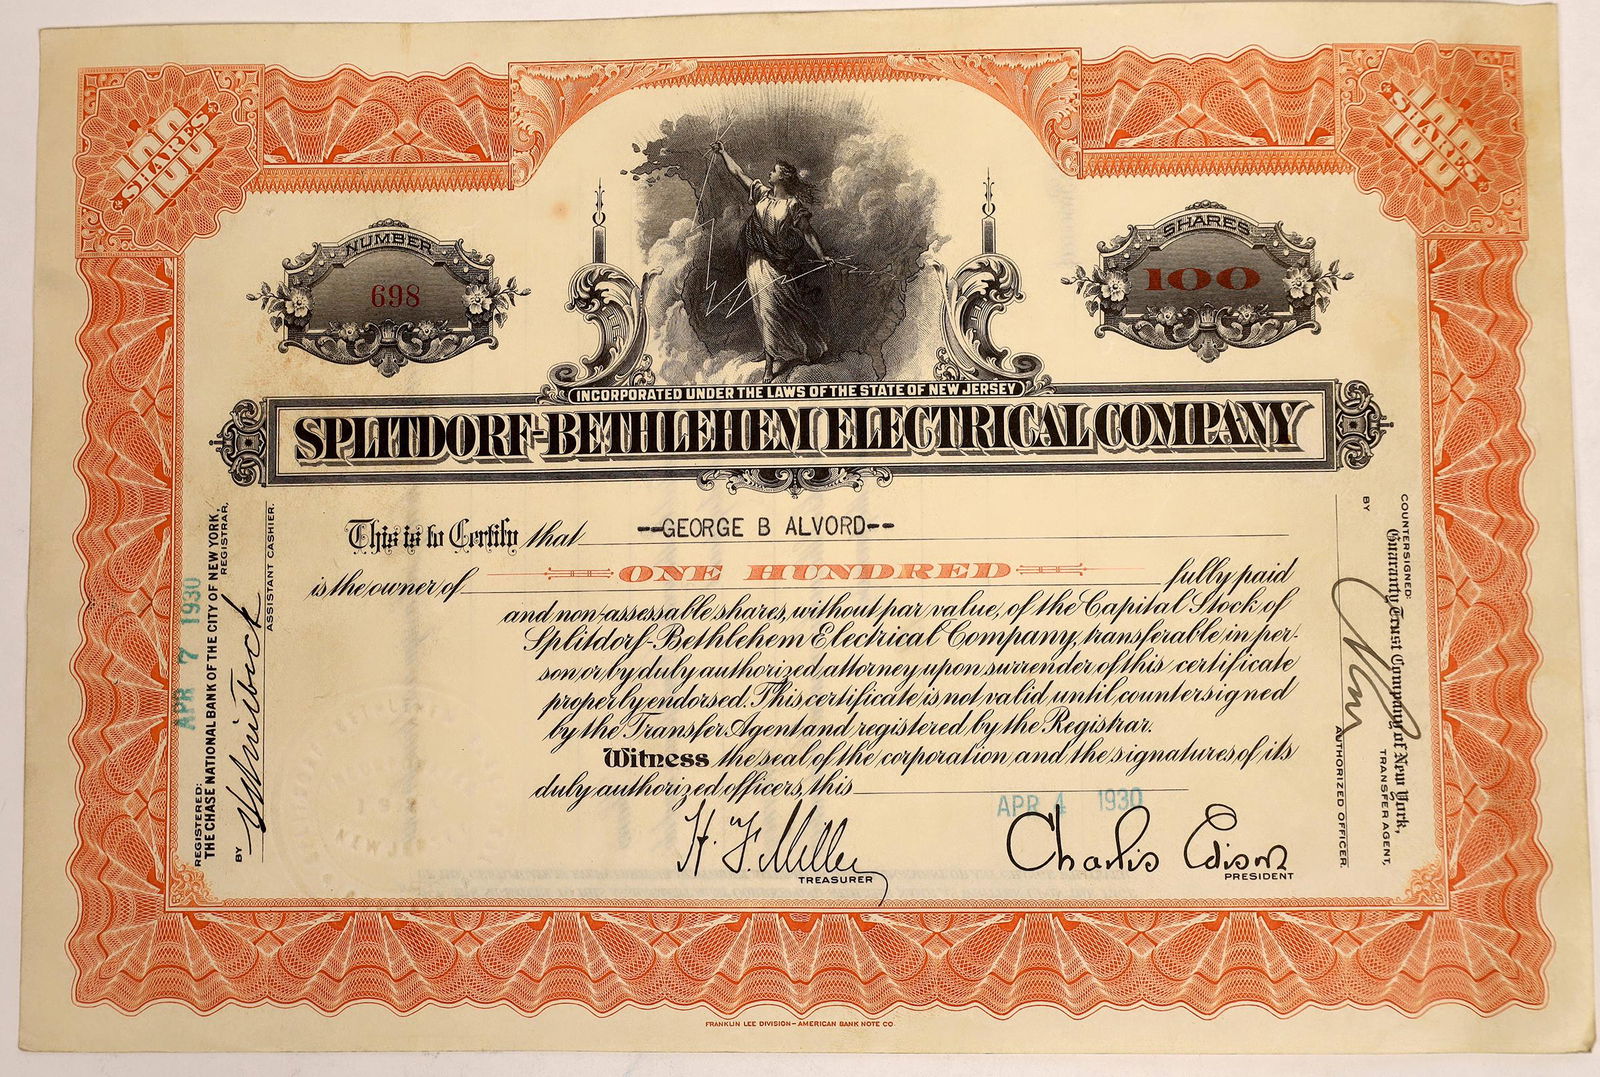 100
SHARES
100
SHARES
NUMBER
698
SHARES
100
INCORPORATED UNDER THE LAWS OF THE STATE OF NEW JERSEY
SPLITDORF-BETHLEHEM ELECTRICAL COMPANY
This is to Certify that --GEORGE B ALVORD--
is the owner of ONE HUNDRED fully paid
and non-assessable shares, without par value, of the Capital Stock of
Splitdorf-Bethlehem Electrical Company, transferable in per-
son or by duly authorized attorney upon surrender of this certificate
properly endorsed. This certificate is not valid until countersigned
by the Transfer Agent and registered by the Registrar.
Witness the seal of the corporation and the signatures of its
duly authorized officers, this APR 4 1930
H. F. Miller
TREASURER
Charles Edison
PRESIDENT
REGISTERED:
THE CHASE NATIONAL BANK OF THE CITY OF NEW YORK,
REGISTRAR.
APR 7 1930
BY
ASSISTANT CASHIER.
COUNTERSIGNED:
Guaranty Trust Company of New York,
TRANSFER AGENT,
BY
AUTHORIZED OFFICER.
FRANKLIN LEE DIVISION - AMERICAN BANK NOTE CO.